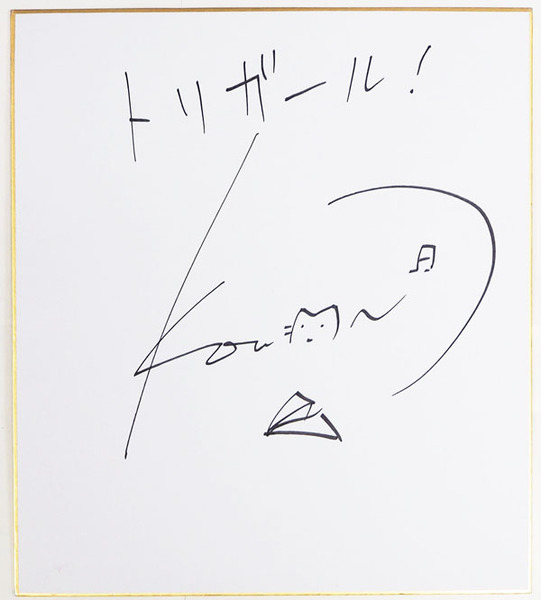 トリガール！
Kou